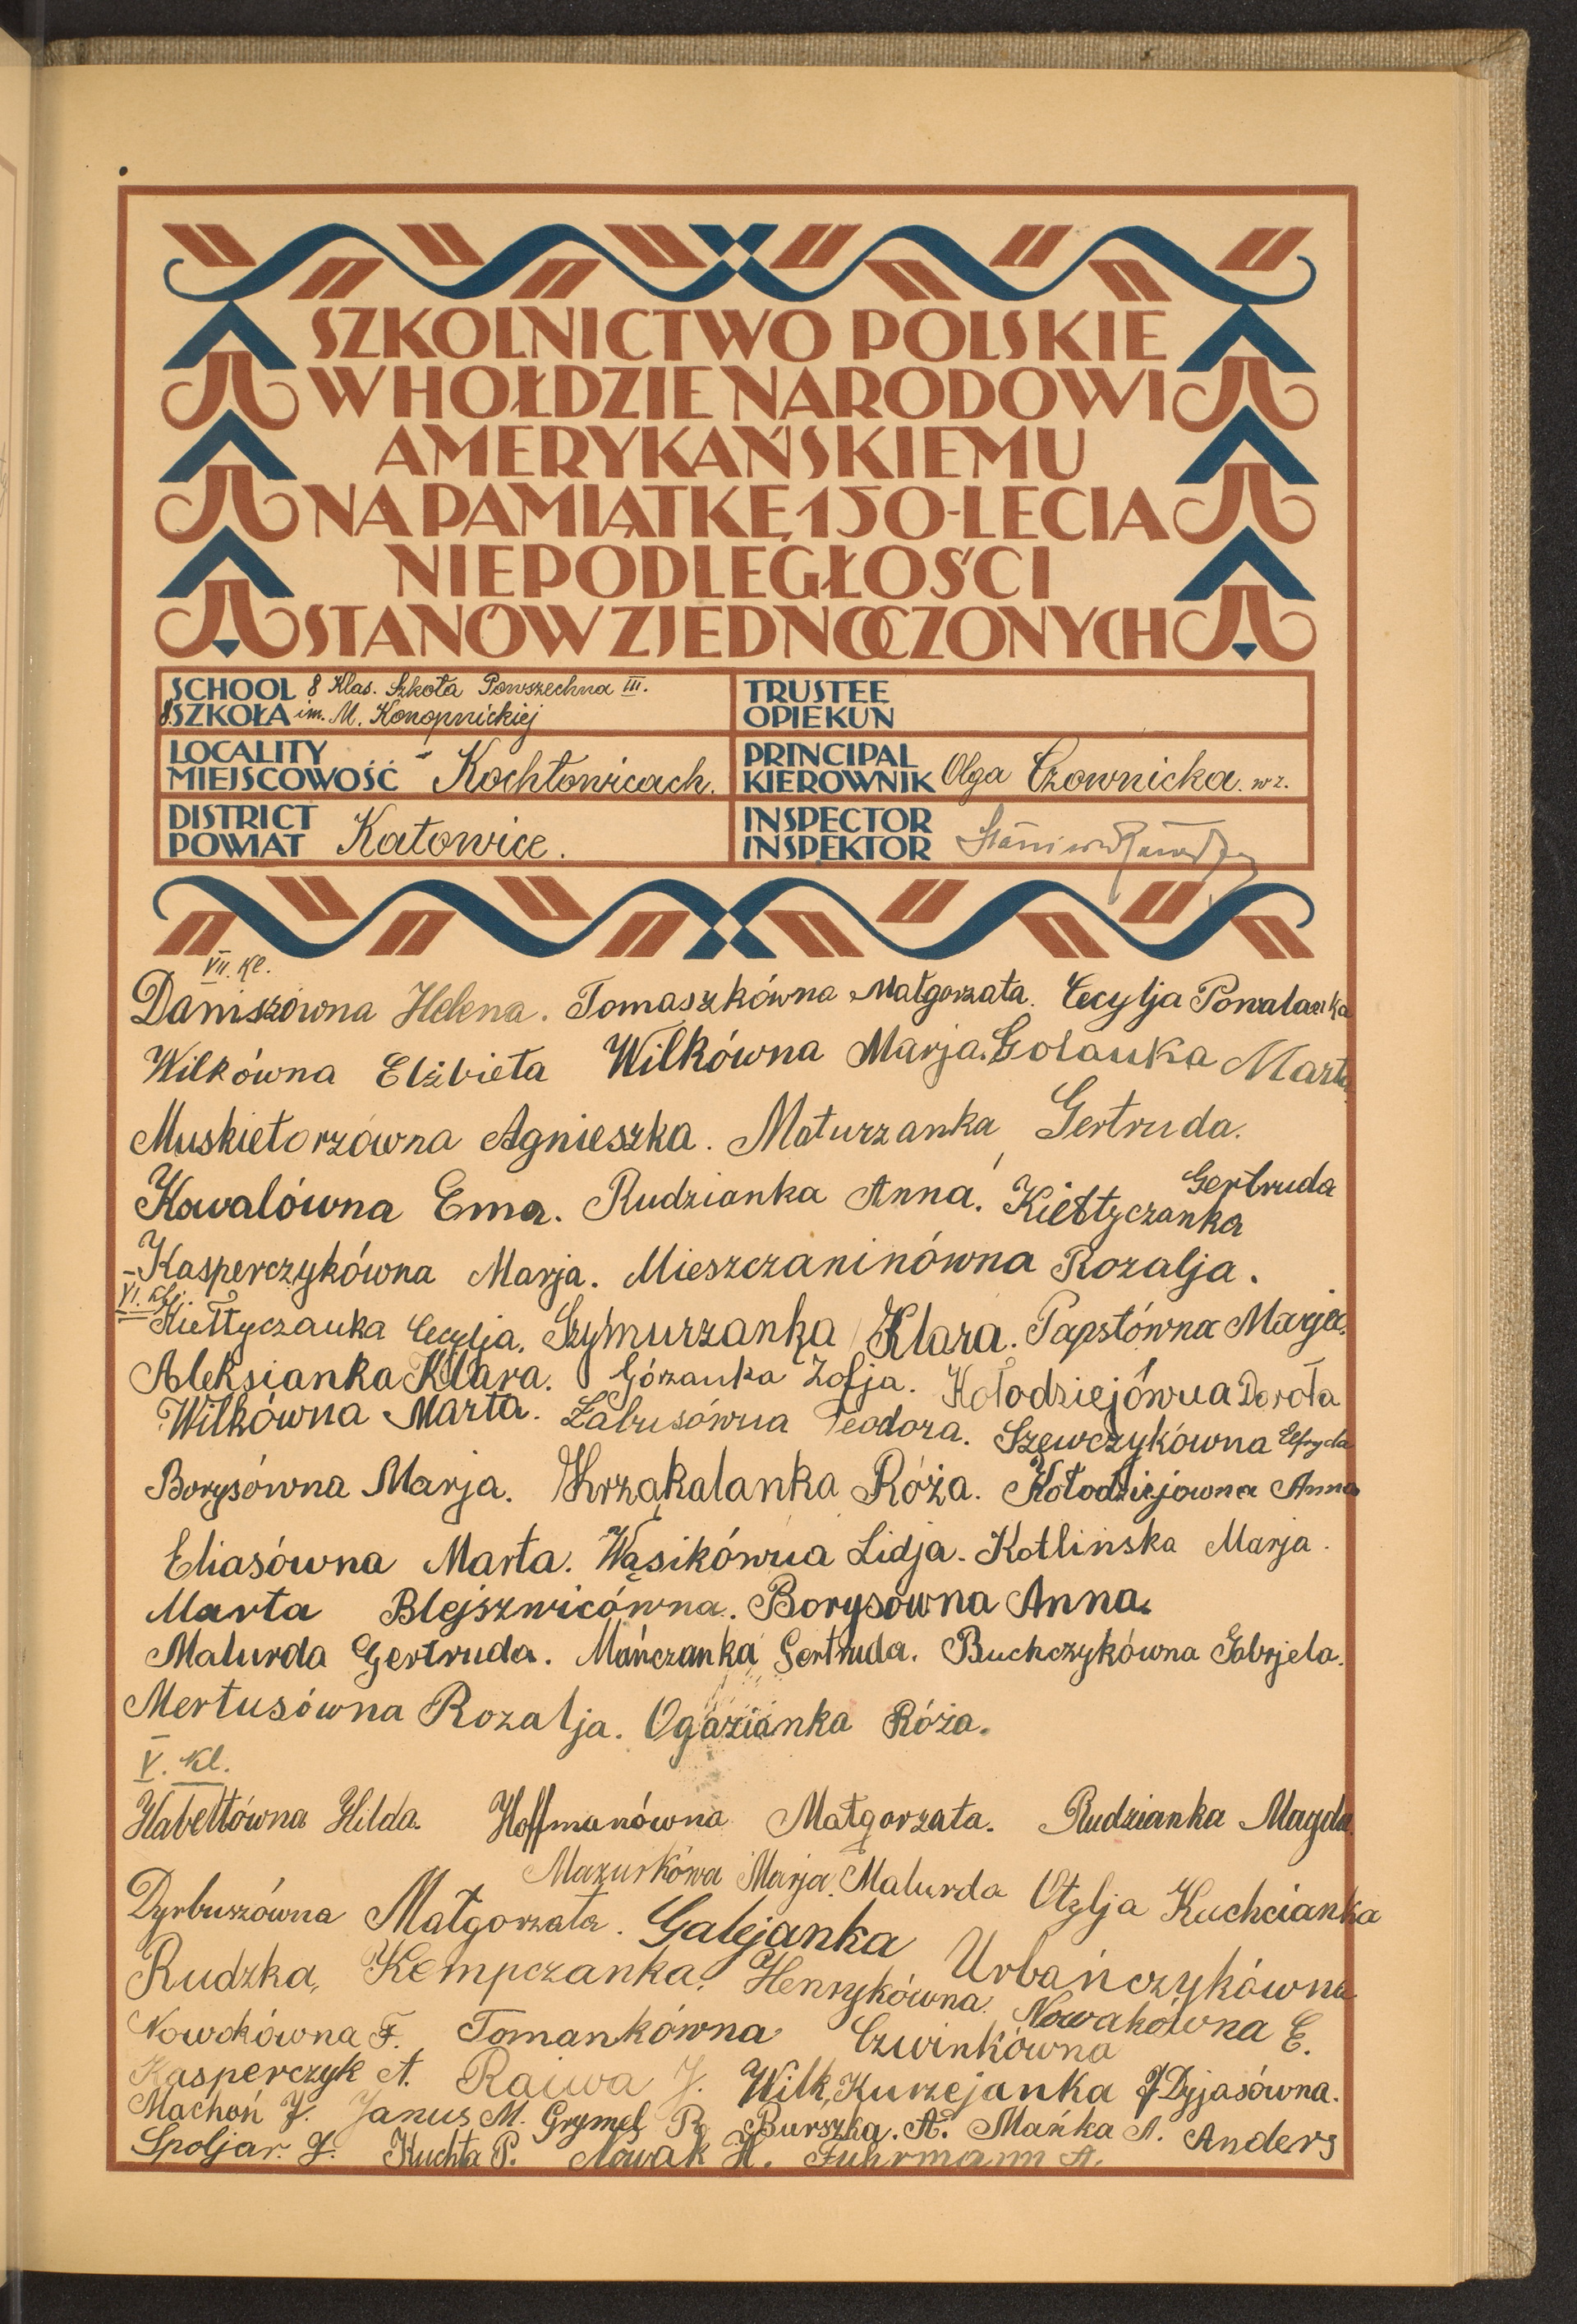 SZKOLNICTWO POLSKIE
W HOŁDZIE NARODOWI
AMERYKAŃSKIEMU
NA PAMIĄTKĘ 150-LECIA
NIEPODLEGŁOŚCI
STANÓW ZJEDNOCZONYCH
SCHOOL 8 Klas. Szkoła Powszechna III.
SZKOŁA im. M. Konopnickiej
TRUSTEE
OPIEKUN
LOCALITY
MIEJSCOWOŚĆ Kochłowicach.
PRINCIPAL
KIEROWNIK Olga Czownicka. wz.
DISTRICT
POWIAT Katowice.
INSPECTOR
INSPEKTOR
VII. Kl.
Daniszówna Helena. Tomaszkówna Małgorzata. Cecylja
Wilkówna Elżbieta Wilkówna Marja. Golanka Marta
Muskietorzówna Agnieszka. Maturzanka Gertruda.
Kowalówna Ema. Rudzianka Anna. Kiełtyczanka Gertruda
Kasperczykówna Marja. Mieszczaninówna Rozalja.
VI. kl.
Kiełtyczanka Cecylja. Szymurzanka Klara. Papstówna Marja.
Aleksianka Klara. Górzanka Zofja. Kołodziejówna Dorota
Wilkówna Marta. Labusówna Teodora. Szewczykówna Elfryda
Borysówna Marja. Krząkalanka Róża. Kołodziejówna Anna
Eliasówna Marta. Wąsikówna Lidja. Kotlinska Marja.
Marta Blejszwicówna. Borysówna Anna.
Malurda Gertruda. Mańczanka Gertruda. Buchczykówna Gabrjela.
Mertusówna Rozalja. Ogazianka Róża.
V. Kl.
Habeltówna Hilda. Hoffmanówna Małgorzata. Rudzianka Magda.
Mazurkówa Marja. Malurda Otylja Kuchcianka
Dyrbuszówna Małgorzata. Galejanka Urbańczykówna
Rudzka, Kempczanka. Henrykówna. Nowakówna E.
Nowokówna F. Tomankówna Czwinkówna
Kasperczyk A. Raiwa J. Wilk, Kurzejanka J. Dyjasówna.
Machoń J. Janus M. Grymel R. Burszka. A. Mańka A. Anders
Spoljar. J. Kuchta P. Nowak H. Fuhrmann A.